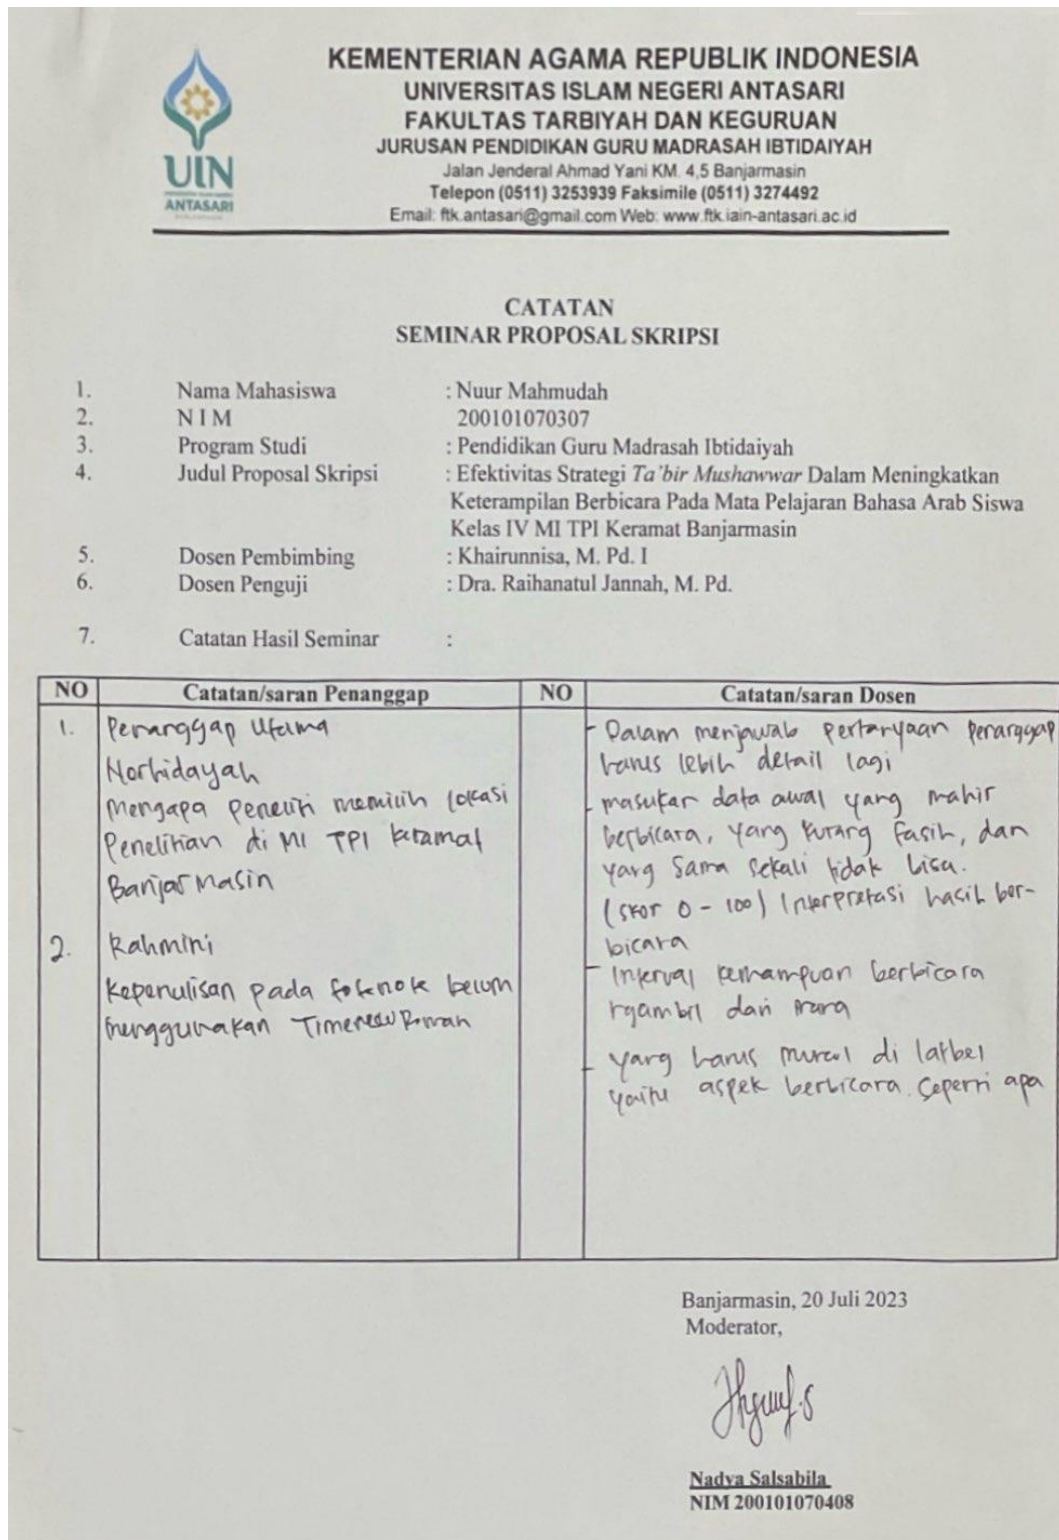 KEMENTERIAN AGAMA REPUBLIK INDONESIA
UNIVERSITAS ISLAM NEGERI ANTASARI
FAKULTAS TARBIYAH DAN KEGURUAN
JURUSAN PENDIDIKAN GURU MADRASAH IBTIDAIYAH
Jalan Jenderal Ahmad Yani KM. 4,5 Banjarmasin
Telepon (0511) 3253939 Faksimile (0511) 3274492
Email: ftk.antasari@gmail.com Web: www.ftk.iain-antasari.ac.id
UIN
ANTASARI
CATATAN
SEMINAR PROPOSAL SKRIPSI
1. Nama Mahasiswa : Nuur Mahmudah
2. N I M 200101070307
3. Program Studi : Pendidikan Guru Madrasah Ibtidaiyah
4. Judul Proposal Skripsi : Efektivitas Strategi Ta'bir Mushawwar Dalam Meningkatkan
Keterampilan Berbicara Pada Mata Pelajaran Bahasa Arab Siswa
Kelas IV MI TPI Keramat Banjarmasin
5. Dosen Pembimbing : Khairunnisa, M. Pd. I
6. Dosen Penguji : Dra. Raihanatul Jannah, M. Pd.
7. Catatan Hasil Seminar :
NO Catatan/saran Penanggap NO Catatan/saran Dosen
1. Penanggap Utama
Norhidayah
Mengapa Peneliti memilih lokasi
Penelitian di MI TPI keramat
Banjarmasin
2. Rahmini
Kepenulisan pada footnote belum
menggunakan Timenew Roman
- Dalam menjawab pertanyaan Penanggap
harus lebih detail lagi
- masukan data awal yang mahir
berbicara, yang kurang fasih, dan
yang sama sekali tidak bisa.
(skor 0 - 100) Interpretasi hasil ber-
bicara
- Interval kemampuan berbicara
ngambil dari mana
- yang harus muncul di latbel
yaitu aspek berbicara seperti apa
Banjarmasin, 20 Juli 2023
Moderator,
Nadya Salsabila
NIM 200101070408